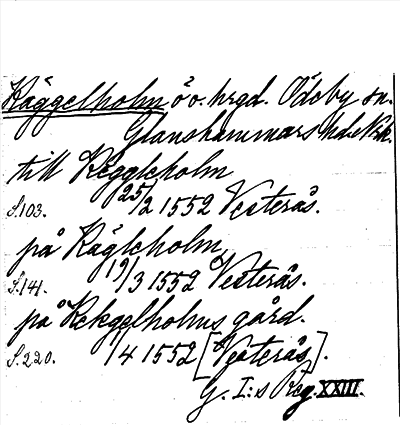 Käggelholm ö o. hrgd. Ödeby sn.
Glanshammars hd. Nrk.
till Keggleholm
S. 103. 25/2 1552 Vesterås.
på Kägleholm
S. 141. 19/3 1552 Vesterås.
på Kekgelholms gård.
S. 220. 1/4 1552 [Vesterås].
G. I:s Reg. XXIII.